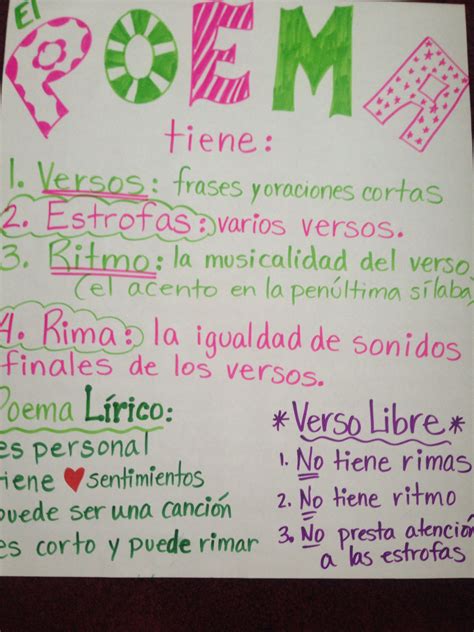 El
POEMA
tiene:
1. Versos: frases y oraciones cortas
2. Estrofas: varios versos.
3. Ritmo: la musicalidad del verso
(el acento en la penúltima sílaba)
4. Rima: la igualdad de sonidos
finales de los versos.
Poema Lírico:
es personal
tiene ♥ sentimientos
puede ser una canción
es corto y puede rimar
*Verso Libre*
1. No tiene rimas
2. No tiene ritmo
3. No presta atención
a las estrofas